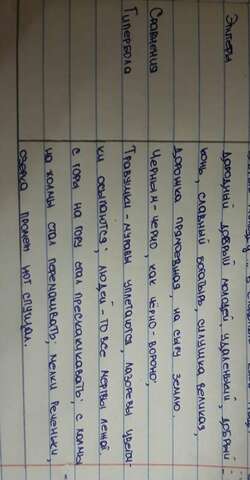 Эпитеты дородный, добрый молодец, удаленький, добрый
конь, славный богатырь, силушка великая,
дорожка прямоезжая, на сыру землю.
Сравнения Черным-черно, как чёрно-ворона.
Гипербола Травушки-муравы уплетаются, лазоревы цветоч-
ки осыпаются; людей-то все мертвы лежат
с горы на гору стал прескакивать; с холмы
на холмы стал перемахивать, мелки реченьки,
озерка промеж ног спущал.